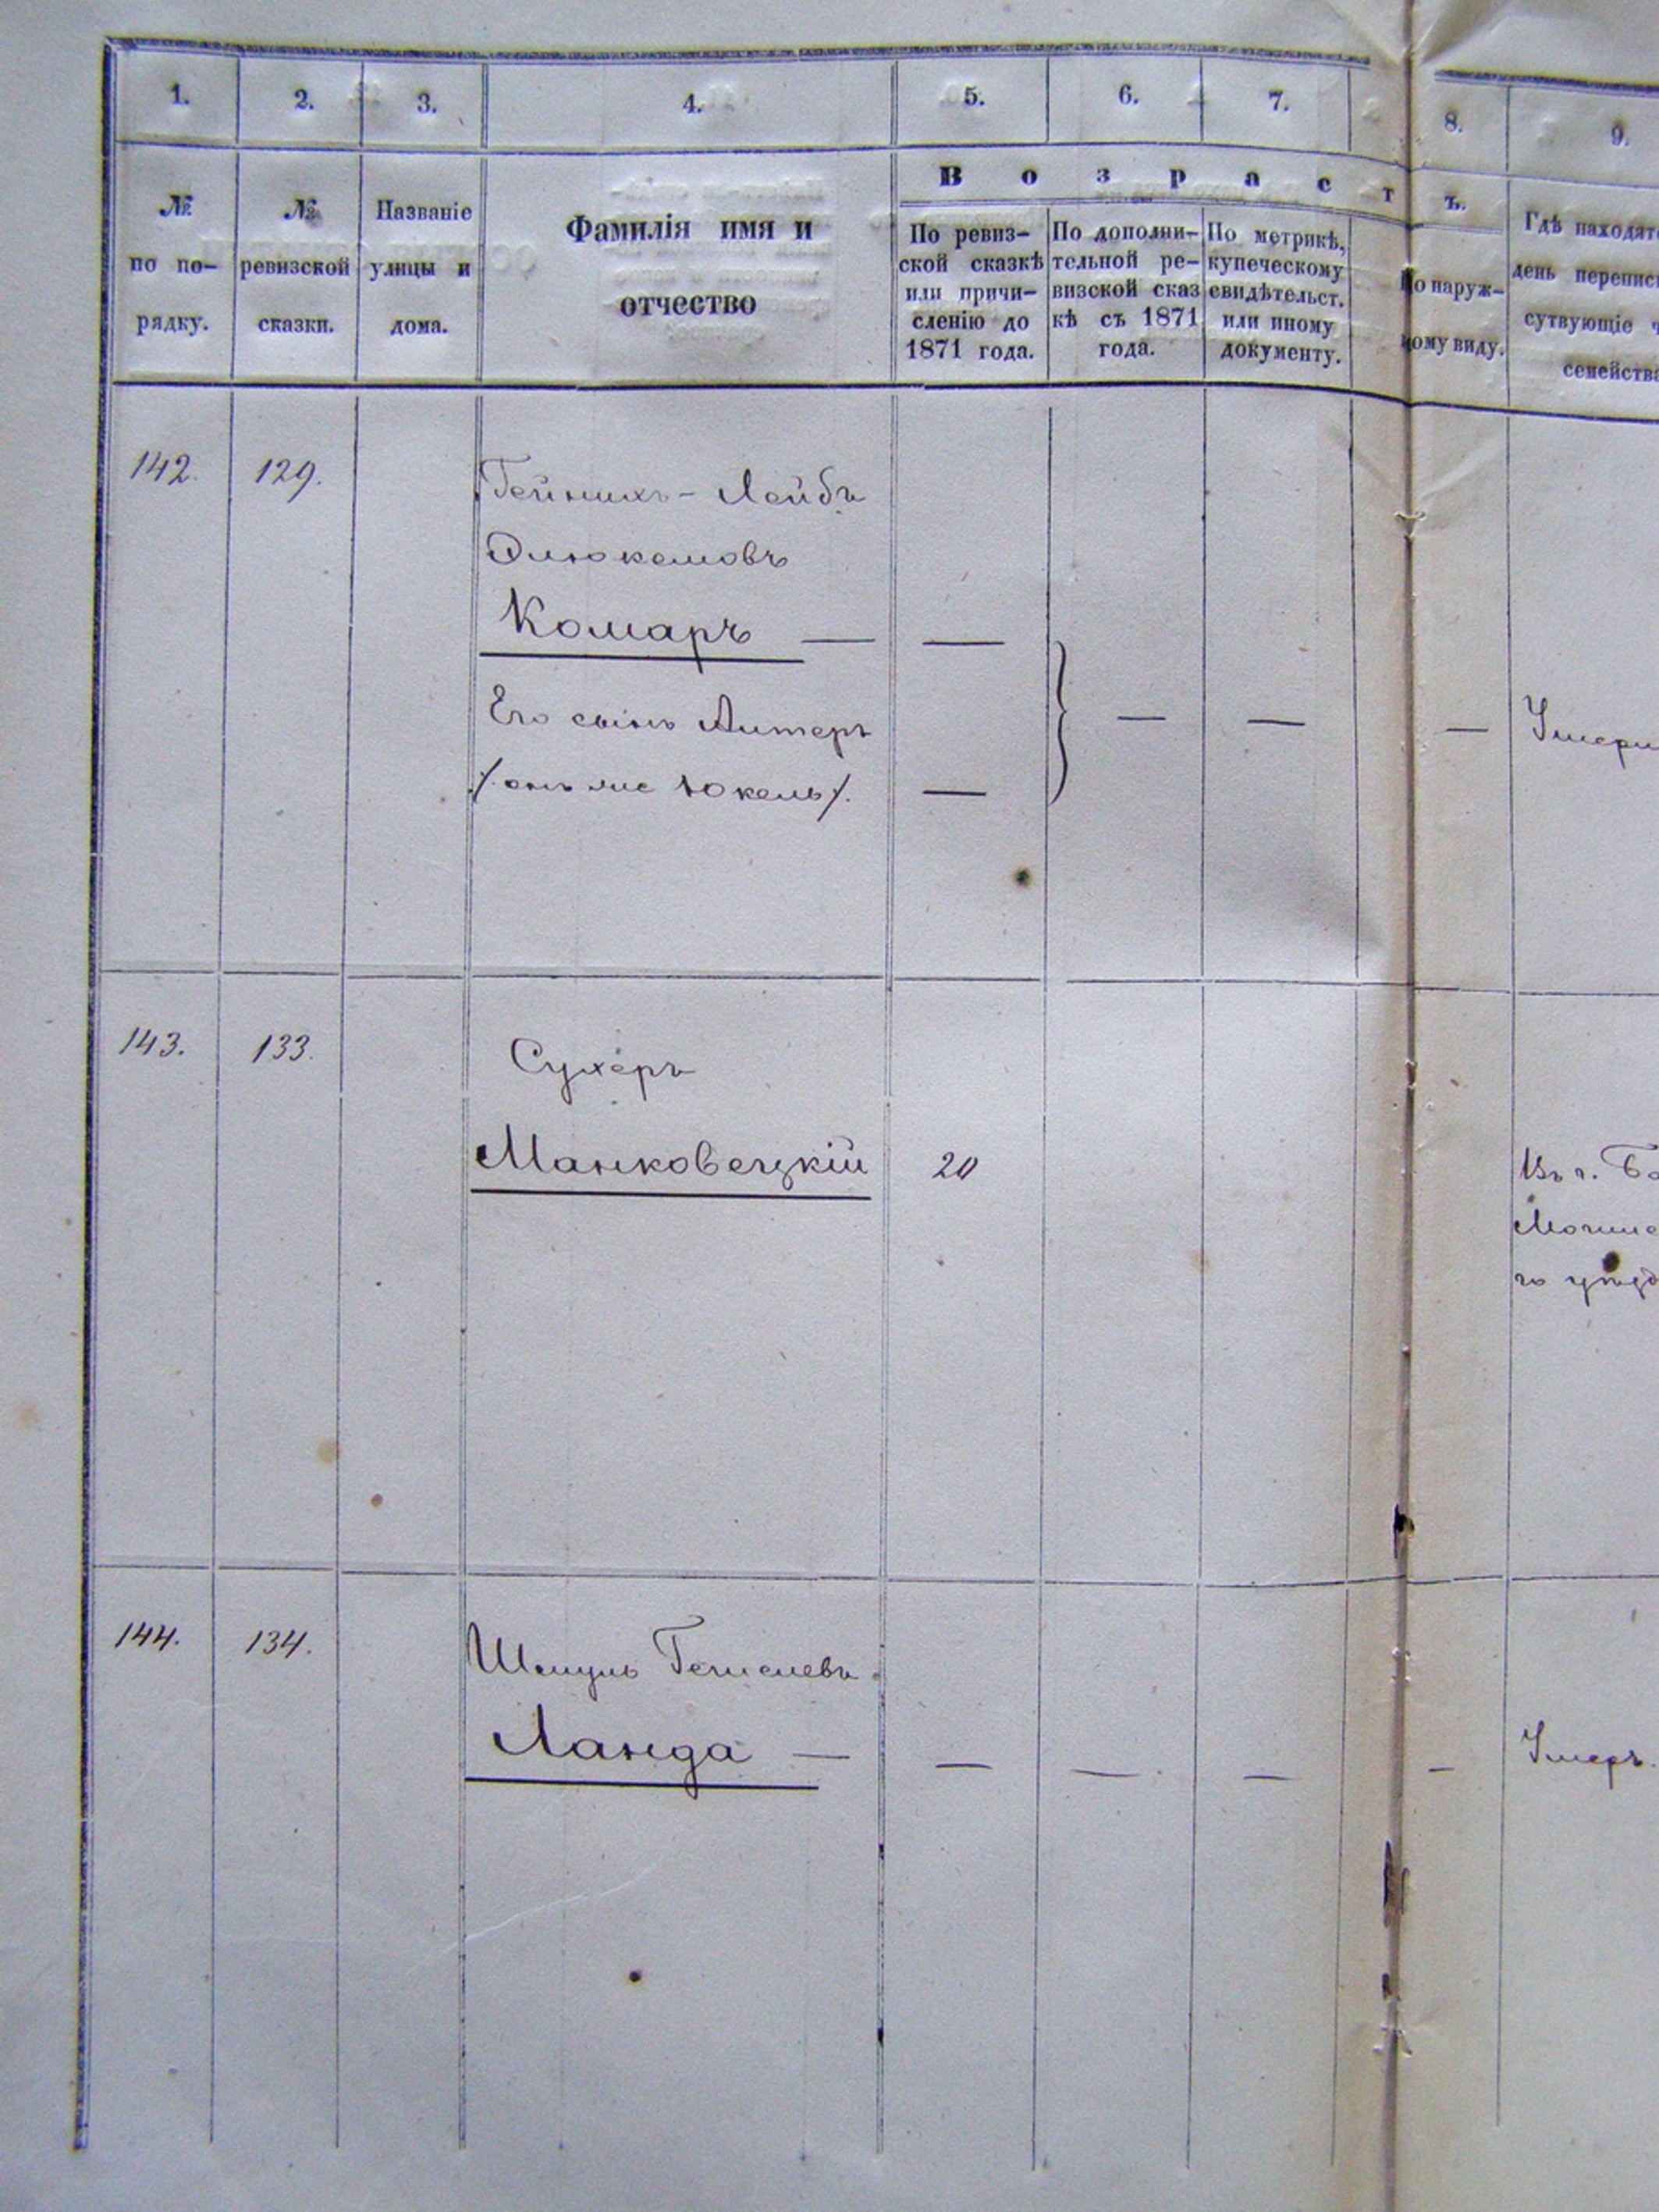 1. 2. 3. 4. 5. 6. 7. 8. 9.
№ по по-рядку.
№ ревизской сказки.
Названіе улицы и дома.
Фамилія имя и
отчество
Возрастъ.
По ревиз-
ской сказкѣ
или причи-
сленію до
1871 года.
По дополни-
тельной ре-
визской сказ
кѣ съ 1871
года.
По метрикѣ,
купеческому
свидѣтельст.
или иному
документу.
По наруж-
ному виду.
Гдѣ находят
день переписи
сутвующіе
семейства
142. 129. Гейнихъ - Лейбъ
Комаръ — —
Его сынъ Альтеръ — — — Умерли
/. онъ же Юкель /. —
143. 133. Сухеръ
Манковецкій 20 Въ г.
144. 134. Шмуль
Ланда — — — — — Умеръ.